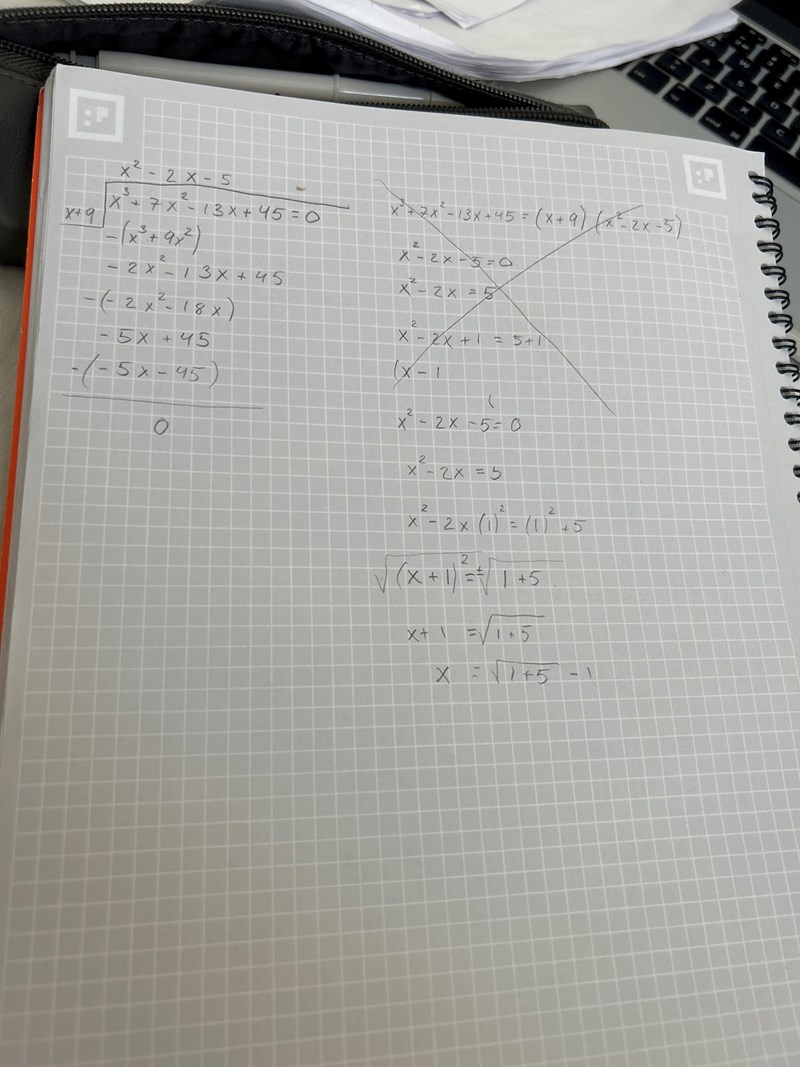 x² - 2x - 5
x+9 x³ + 7x² - 13x + 45 = 0
-(x³ + 9x²)
- 2x² - 13x + 45
-(-2x² - 18x)
- 5x + 45
-(-5x - 45)
0
x³ + 7x² - 13x + 45 = (x+9) (x² - 2x - 5)
x² - 2x - 5 = 0
x² - 2x = 5
x² - 2x + 1 = 5+1
(x - 1
x² - 2x - 5 = 0
x² - 2x = 5
x² - 2x (1)² = (1)² + 5
√(x + 1)² = ±√1 + 5
x + 1 = √1+5
x = √1+5 - 1